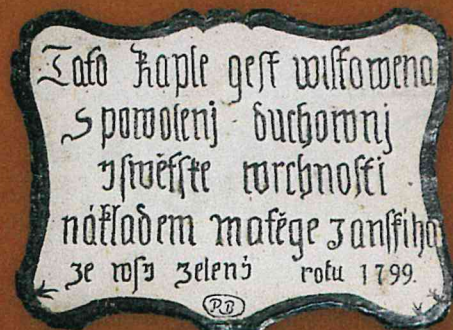 Tato kaple gest wistowena
S powolenj duchownj
ysweěstke wrchnosti
nákladem matěge Janskiho
ze wsy zelený roku 1799.
P.B